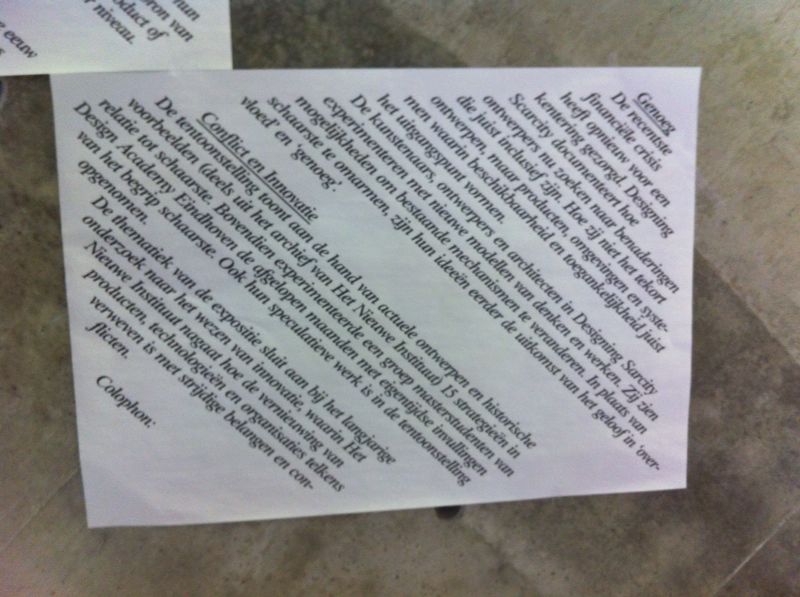 num
ron van
oduct of
r niveau.
e eeuw
Genoeg
De recentste
financiële crisis
heeft opnieuw voor een
kentering gezorgd. Designing
Scarcity documenteert hoe
ontwerpers nu zoeken naar benaderingen
die juist inclusief zijn. Hoe zij niet het tekort
ontwerpen, maar producten, omgevingen en syste-
men waarin beschikbaarheid en toegankelijkheid juist
het uitgangspunt vormen.
De kunstenaars, ontwerpers en architecten in Designing Surcity
experimenteren met nieuwe modellen van denken en werken. Zij zien
mogelijkheden om bestaande mechanismen te veranderen. In plaats van
schaarste te omarmen, zijn hun ideeën eerder de uitkomst van het geloof in 'over-
vloed' en 'genoeg'.
Conflict en Innovatie
De tentoonstelling toont aan de hand van actuele ontwerpen en historische
voorbeelden (deels uit het archief van Het Nieuwe Instituut) 15 strategieën in
relatie tot schaarste. Bovendien experimenteerde een groep masterstudenten van
Design Academy Eindhoven de afgelopen maanden met eigentijdse invullingen
van het begrip schaarste. Ook hun speculatieve werk is in de tentoonstelling
opgenomen.
De thematiek van de expositie sluit aan bij het langjarige
onderzoek naar het wezen van innovatie, waarin Het
Nieuwe Instituut nagaat hoe de vernieuwing van
producten, technologieën en organisaties telkens
verweven is met strijdige belangen en con-
flicten.
Colophon: